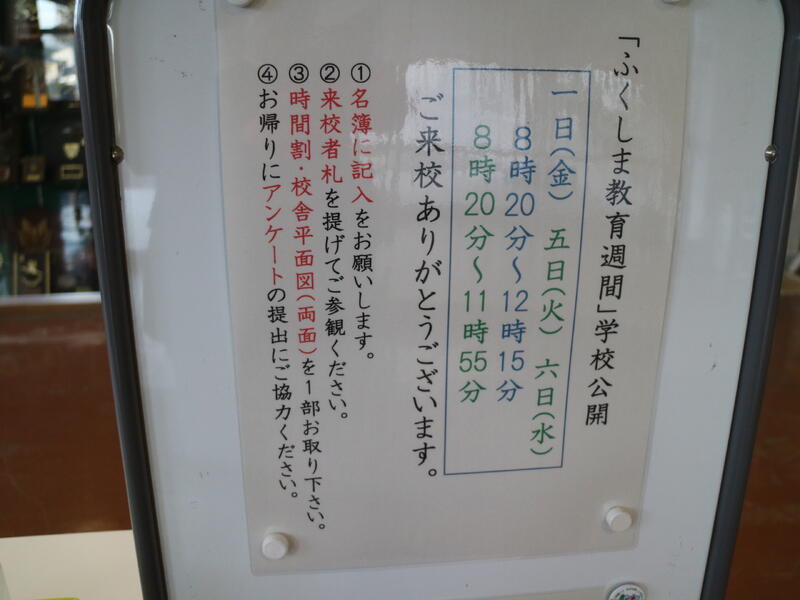 「ふくしま教育週間」学校公開
一日(金) 五日(火) 六日(水)
8時20分～12時15分
8時20分～11時55分
ご来校ありがとうございます。
①名簿に記入をお願いします。
②来校者札を提げてご参観ください。
③時間割・校舎平面図(両面)を1部お取り下さい。
④お帰りにアンケートの提出にご協力ください。